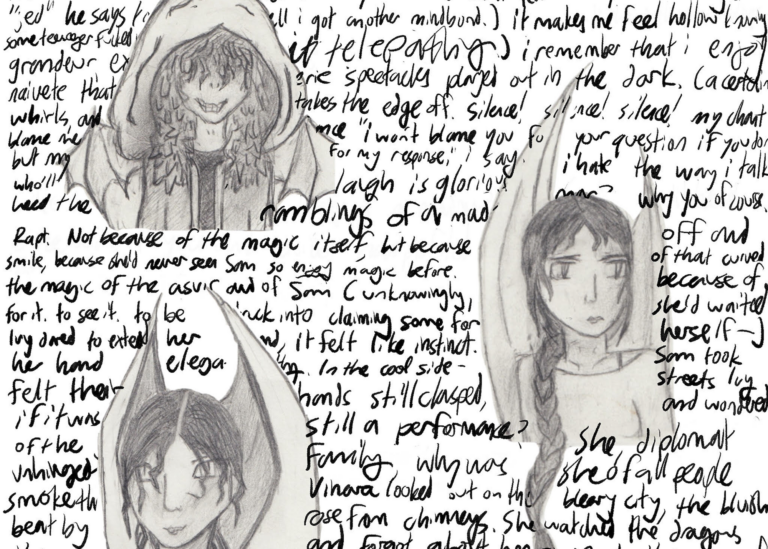 "jed" he says to ll i got another mindbond.) it makes me feel hollow
some teenager it telepathy) i remember that i enjoy
grandeur ex rie spectacles played out in the dark. (a certain
naivete that takes the edge off. silence! silence! silence! my chant
whirls, and nce "i won't blame you fo your question if you don
blame me for my response," i say. i hate the way i talk
but my laugh is glorious why you of course.
who'll ramblings of a mad off and
heed the of that curved
Rapt. Not because of the magic itself, but because because of
smile, because she'd never seen Sam so enjoy magic before. she'd waited
the magic of the asvir and of Sam (unknowingly, herself—)
for it. to see it. to be ruck into claiming some for Sam took
Ivy dared to extend her nd, it felt like instinct. streets Ivy
her hand elega ing. In the cool side- and wondered
felt their hands still clasped,
if it was still a performance? She diplomat
of the Family, why was she of all people
unhinged Vinara looked out on the bleary city, the bluish
smoke th rose from chimneys. She watched the dragons
beat by and forgot about